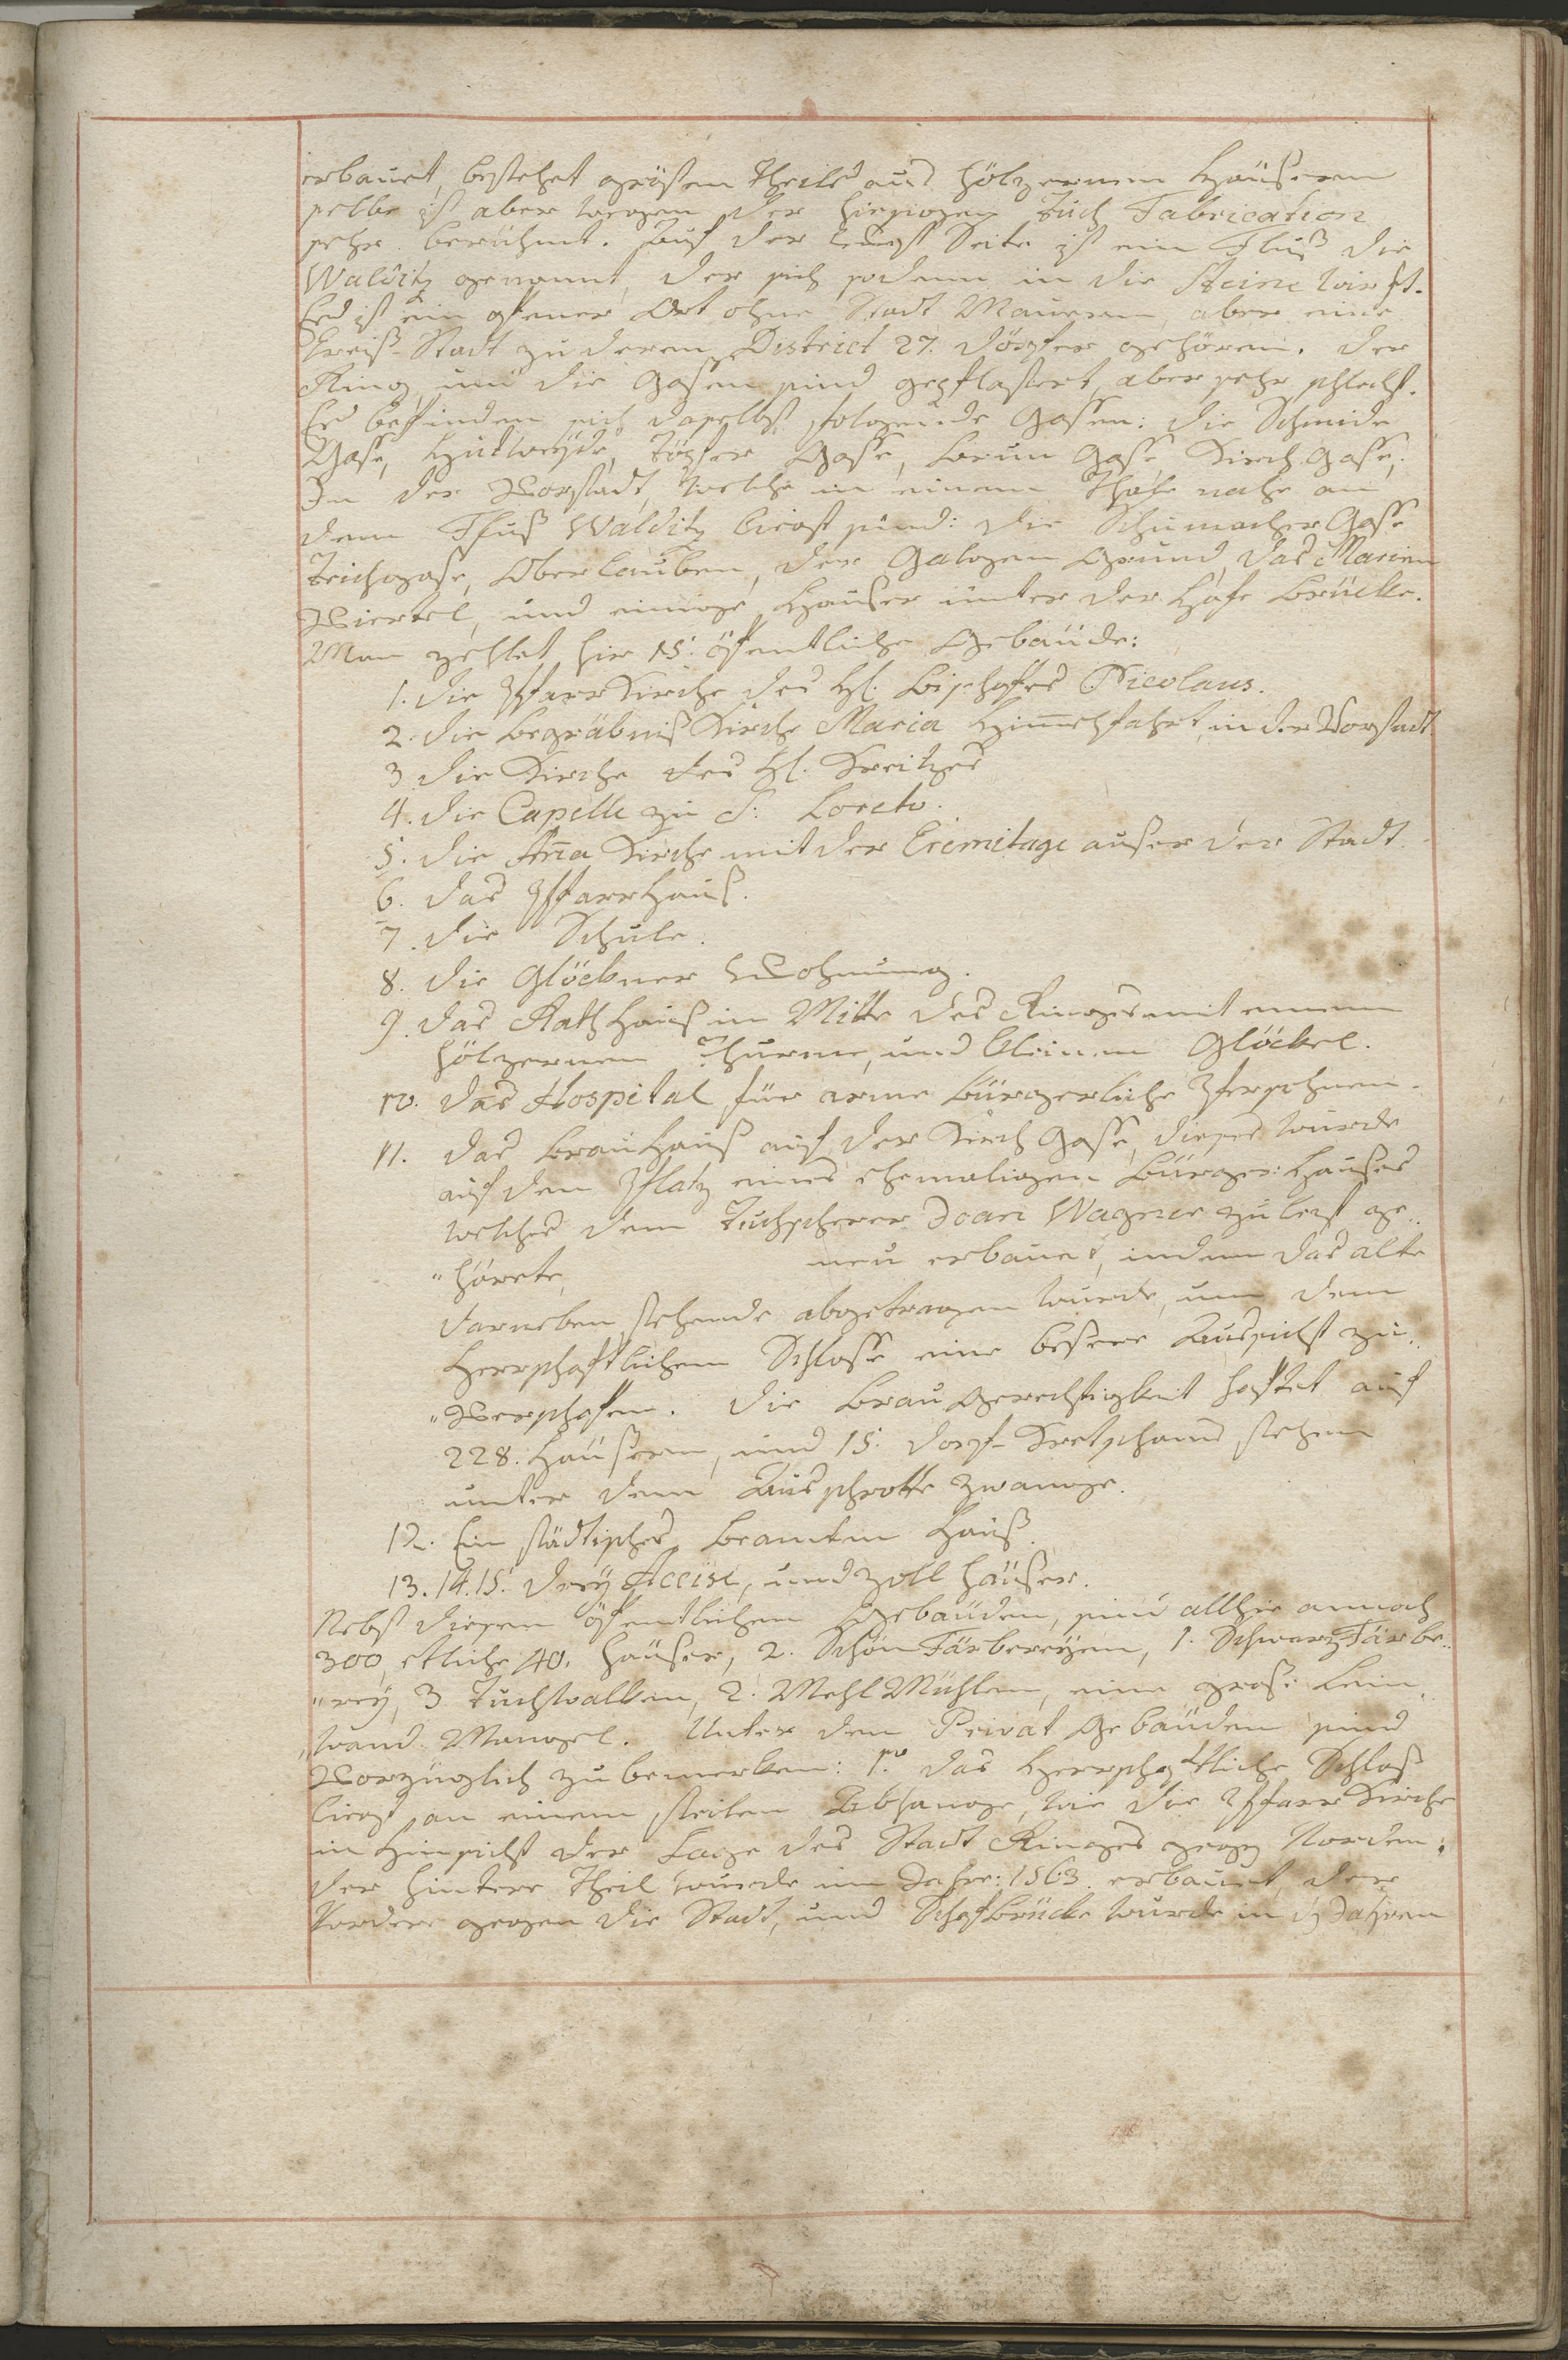 erbauet, bestehet grösten Theils aus hölzernen Häusern
selbe ist aber wegen der hiesigen Tuch Fabrication
sehr berühmt. Auf der Seite ist ein Fluß die
Walditz genannt, der sich sodann in die Steine wirft.
Es ist ein offener Ort ohne Stadt Mauern, aber eine
Kreiß-Stadt zu deren District 27. Dörfer gehören. Der
Ring und die Gassen sind gepflastert, aber sehr schlecht.
Es befinden sich daselbst folgende Gassen: die Schmide
Gasse, Hutweyde, Töpfer Gasse, Brun Gasse, Kirch Gasse,
In der Vorstadt, welche in einem Thale nahe an
dem Fluß Walditz liegt sind: die Schumacher Gasse
Teichgasse, Oberlauben, der Galgen Grund, das Marien
Viertel, und einige Häuser unter der Brücke.
Man zehlet hier 15. öffentliche Gebäude:
1. Die Pfarr Kirche des Hl. Bischofes Nicolaus.
2. die Begräbniß Kirche Maria Him̄elfahrt, in der Vorstadt
3 die Kirche des Hl. Kreitzes
4. die Capelle zu S: Loreto.
5. die An̄a Kirche mit der Eremitage außer der Stadt.
6. das Pfarrhauß.
7. die Schule.
8. die Glöckner Wohnung.
9. das Rath Hauß in Mitte des Ringes mit einem
hölzernen Thurme, und kleinen Glöckel.
10. das Hospital für arme bürgerliche Persohnen.
11. das Brau Hauß auf der Kirch Gasse, dieses wurde
auf dem Platz eines ehemaligen Bürger: Hauses
welches dem Tuchscherer Joan Wagner zuletzt ge„
„hörete, neu erbauet, indem das alte
darneben stehende abgetragen wurde, um dem
Herrschaftlichem Schlosse eine bessere Aussicht zu„
„Verschafen. die Brau Gerechtigkeit haftet auf
228. Häusern, und 15. Dorf-Kretschams stehen
unter dem Ausschrotte Zwange.
12. Ein städtisches Beamten Hauß.
13. 14. 15. Drey Accise, und Zoll Häuser.
Nebst diesen öffentlichen Gebäuden, sind allhie annoch
300, etliche 40. Häuser, 2. Schön Färbereyen, 1. Schwarz Färbe„
„rey, 3 Tuchwalken, 2. Mehl Mühlen, eine grosse Lein„
„wand Mangel. Unter den Privat Gebäuden sind
Vorzüglich zu bemerken: 1mo das Herrschaftliche Schloß
liegt an einem steilen Abhange, wie die Pfarr Kirche
in Hinsicht der Lage des Stadt Ringes gegen Norden.
der hintere Theil wurde im Jahre: 1563. erbauet, der
Vordere gegen die Stadt, und Brücke wurde in Jahren